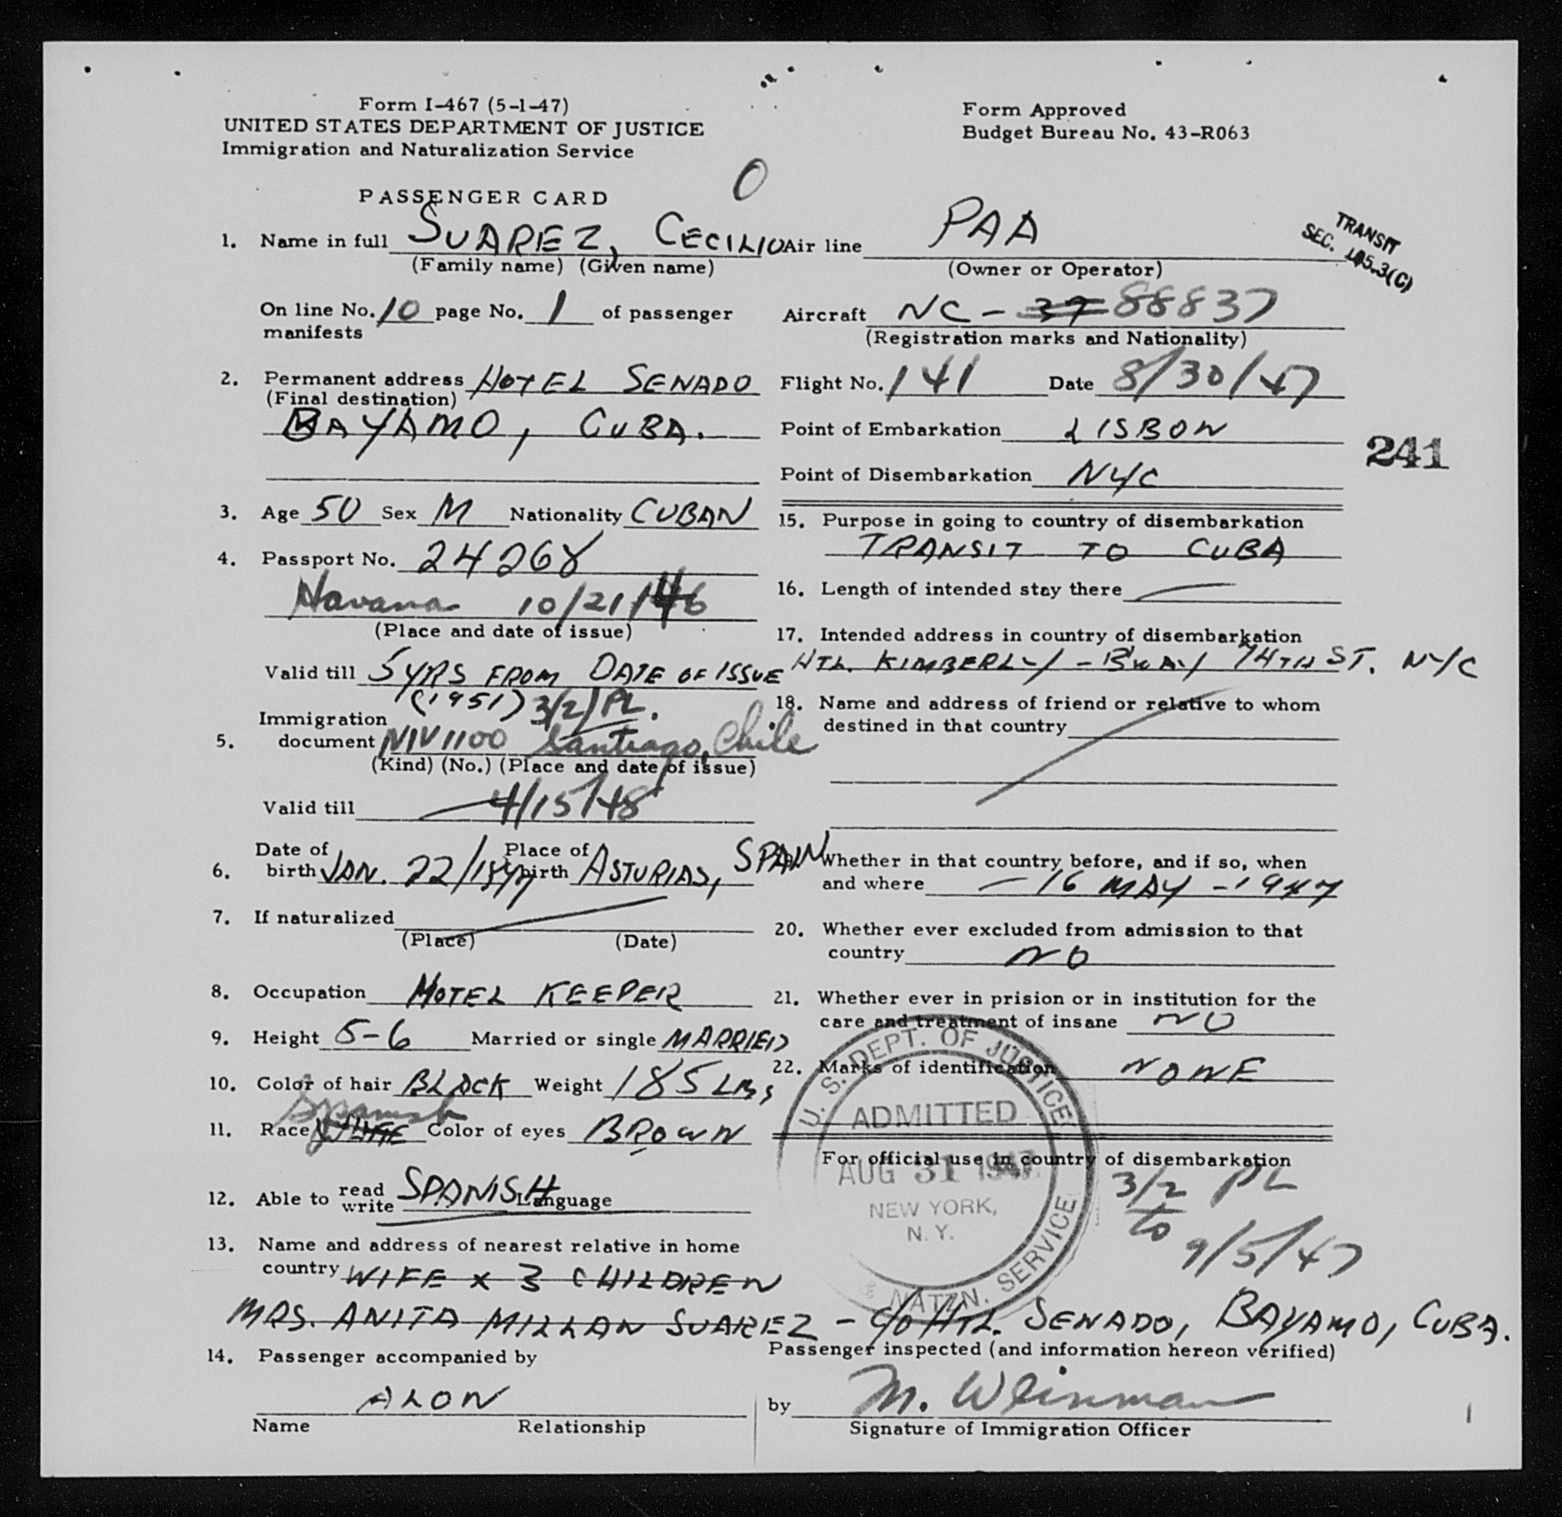 Form I-467 (5-1-47)
UNITED STATES DEPARTMENT OF JUSTICE
Immigration and Naturalization Service
Form Approved
Budget Bureau No. 43-R063
PASSENGER CARD
O
1. Name in full SUAREZ, CECILIO
(Family name) (Given name)
On line No. 10 page No. 1 of passenger
manifests
2. Permanent address HOTEL SENADO
(Final destination)
BAYAMO, CUBA.
3. Age 50 Sex M Nationality CUBAN
4. Passport No. 24268
Havana 10/21/46
(Place and date of issue)
Valid till 5 YRS FROM DATE OF ISSUE
(1951) 3/2/PL.
5. Immigration
document NIV 1100 Santiago, Chile
(Kind) (No.) (Place and date of issue)
Valid till 4/15/48
6. Date of birth JAN. 22/1897 Place of birth ASTURIAS, SPAIN
7. If naturalized
(Place) (Date)
8. Occupation HOTEL KEEPER
9. Height 5-6 Married or single MARRIED
10. Color of hair BLACK Weight 185 LBS
11. Race Spanish Color of eyes BROWN
12. Able to read write SPANISH Language
13. Name and address of nearest relative in home
country WIFE X 3 CHILDREN
MRS. ANITA MILLAN SUAREZ - C/O HTL. SENADO, BAYAMO, CUBA.
14. Passenger accompanied by
ALON
Name Relationship
Air line PAA
(Owner or Operator)
TRANSIT
SEC. 105.3(C)
Aircraft NC - 37 88837
(Registration marks and Nationality)
Flight No. 141 Date 8/30/47
Point of Embarkation LISBON
241
Point of Disembarkation NYC
15. Purpose in going to country of disembarkation
TRANSIT TO CUBA
16. Length of intended stay there —
17. Intended address in country of disembarkation
HTL. KIMBERLY - B'WAY 74TH ST. NYC
18. Name and address of friend or relative to whom
destined in that country
Whether in that country before, and if so, when
and where — 16 MAY - 1947
20. Whether ever excluded from admission to that
country NO
21. Whether ever in prision or in institution for the
care and treatment of insane NO
22. Marks of identification NONE
U. S. DEPT. OF JUSTICE
ADMITTED
AUG 31 1947
NEW YORK,
N. Y.
NATZN. SERVICE
For official use in country of disembarkation
3/2 PL
to
9/5/47
Passenger inspected (and information hereon verified)
by M. Weinman
Signature of Immigration Officer